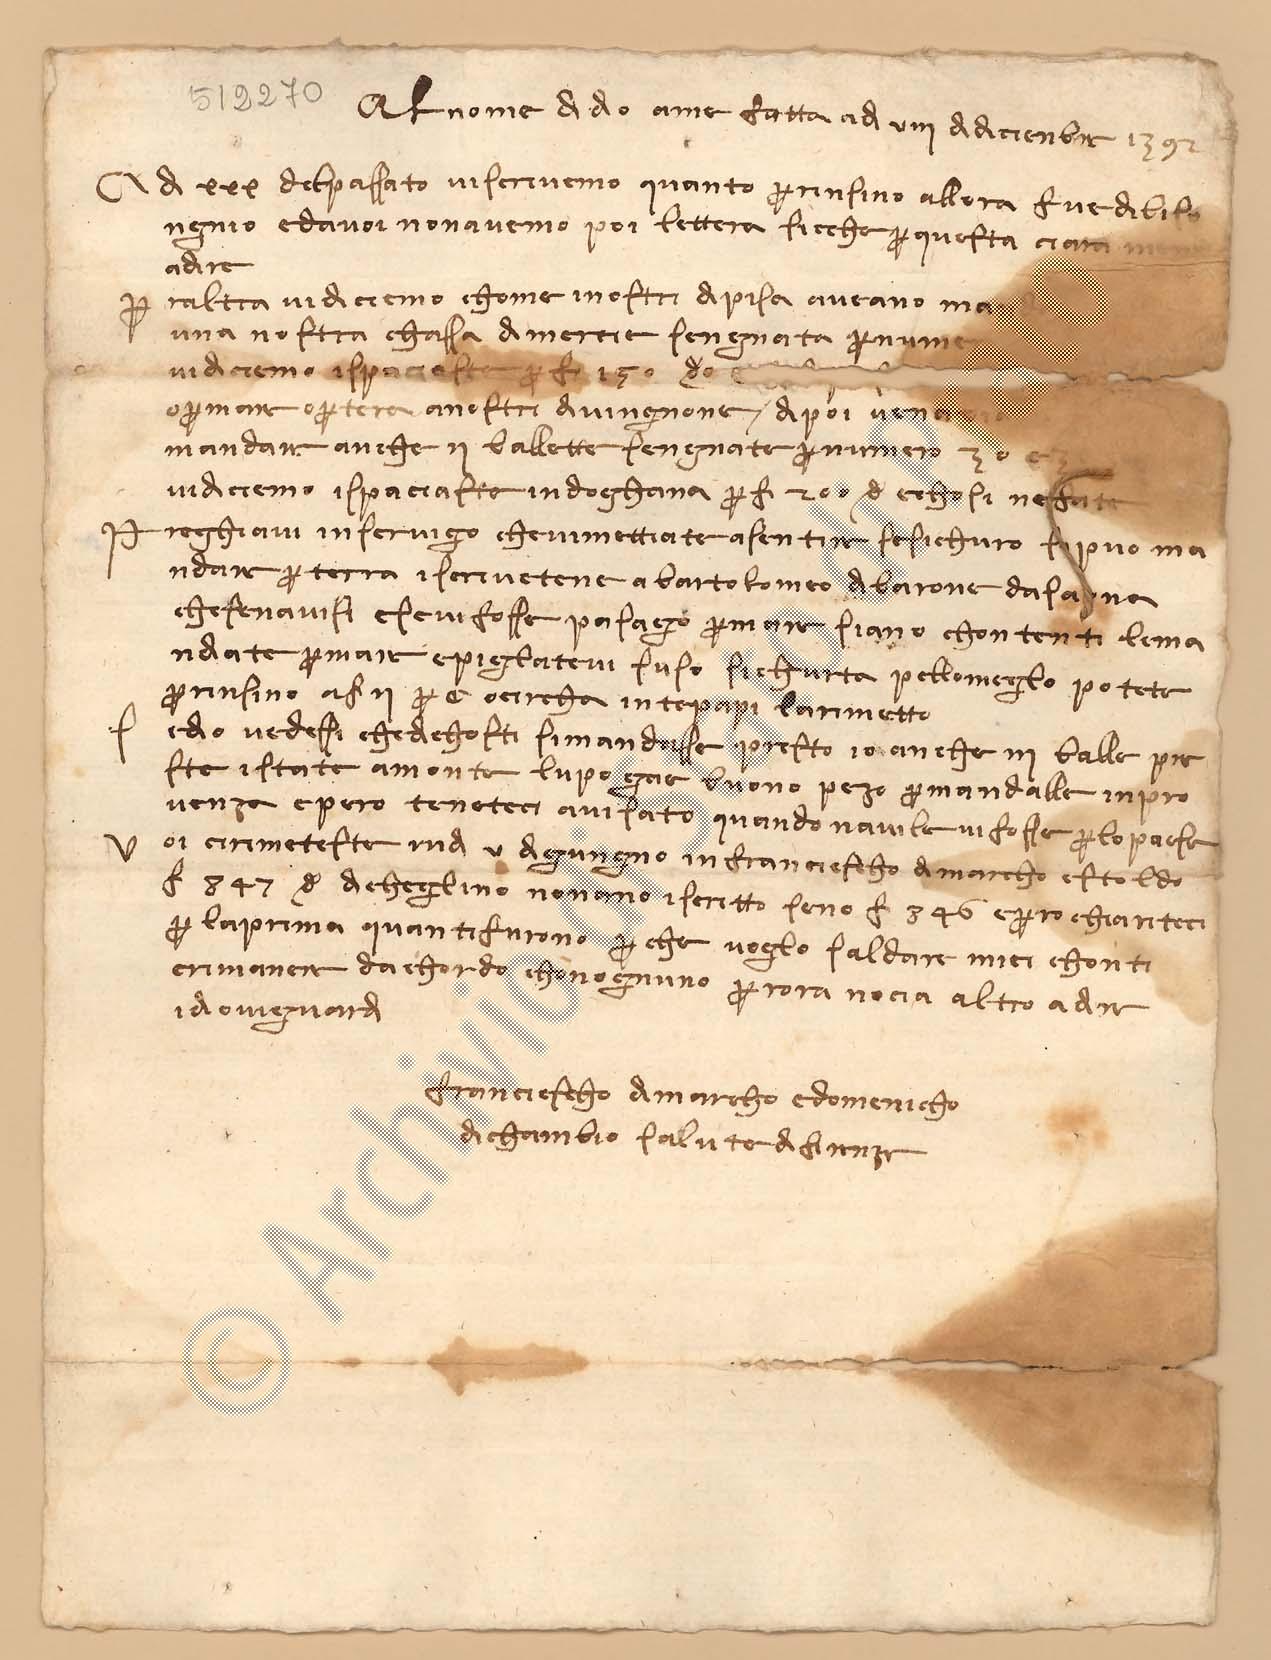 512270
Al nome di dio ame fatta a dì viii di diciembre 1392
A dì xxx del passato vi scrivemo quanto per insino allora fu di biso
ngnio e da voi non avemo poi lettera sicche per questa ciara
a dire
Per altra vi diciemo chome i nostri di pisa aveano
una nostra chassa di mercie sengnata per
vi diciemo ispaciaste per f 150 d'o
o per mare o per tera a nostri di vingnone / di poi
mandare anche ii ballette sengnate per numero 30 e
vi diciemo ispaciaste in doghana per f 200 d e chosi ne fate
Preghiavi in servigo che vi mettiate a sentire se sichuro si puo ma
ndare per terra iscrivetene a bartolomeo di barone da saona
che se n avisi e se vi fosse pasagio per mare siano chontenti le ma
ndate per mare e piglatevi suso sichurta pello meglo potete
per insino a f ii per c o circha in te papi la rimetto
S ed io vedessi che di chosti si mandasse presto io anche iii balle pre
ste istate a monte lupo gae buono pezo per mandalle in pro
venza e pero teneteci avisato quando navile vi fosse per lo paese
Voi ci rimeteste in dì v di giungno in franciescho di marcho e stoldo
f 847 d di che eglino non ano iscritto se no f 846 e pero chiariteci
per la prima quanti furono perche voglo saldare miei chonti
e rimanere d achordo chon ognuno per ora nocia altro a dire
idio vi guardi
franciescho di marcho e domenicho
di chambio salute di firenze
© Archivio di Stato di Prato